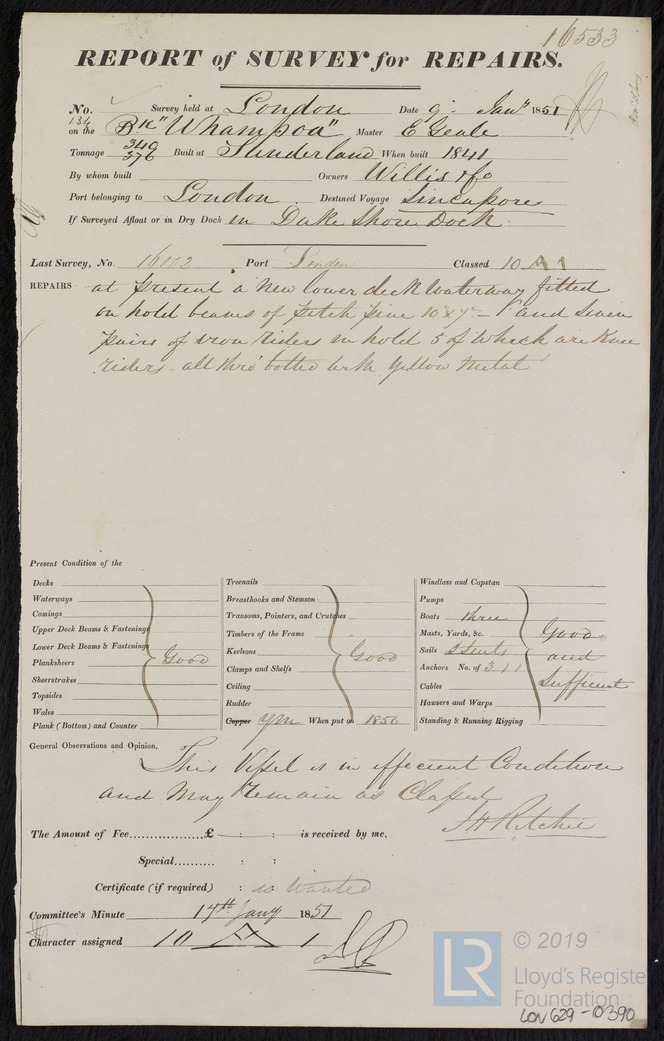 16533
REPORT of SURVEY for REPAIRS.
No. 134 Survey held at London Date 9th Jany 1851
on the Bk "Whampoa", Master E Geale
Tonnage 349 376 Built at Sunderland When built 1841
By whom built Owners Willis & Co
Port belonging to London Destined Voyage Sincapore
If Surveyed Afloat or in Dry Dock in Duke Shore Dock
Last Survey, No. 16002 Port London Classed 10 A 1
REPAIRS at present a new lower deck waterway fitted
on hold beams of pitch pine and seven
pairs of iron riders in hold 5 of which are Knee
riders - all thro' bolted with Yellow Metal
Present Condition of the
Decks
Waterways
Comings
Upper Deck Beams & Fastenings
Lower Deck Beams & Fastenings
Planksheers Good
Sheerstrakes
Topsides
Wales
Plank (Bottom) and Counter
Treenails
Breasthooks and Stemson
Transoms, Pointers, and Crutches
Timbers of the Frame
Keelsons Good
Clamps and Shelfs
Ceiling
Rudder
Copper YM When put on 1850
Windlass and Capstan
Pumps
Boats three
Masts, Yards, &c. Good
Sails 2 Suits and
Anchors No. of 3.1.1
Cables Sufficient
Hawsers and Warps
Standing & Running Rigging
General Observations and Opinion,
This Vessel is in effecient Condition
and May remain as Classed
J H Ritchie
The Amount of Fee £ : : is received by me,
Special : :
Certificate (if required) : is Wanted
Committee's Minute 14th Jany 1851
Character assigned 10 A 1
© 2019
LR Lloyd's Registe
Foundation
LON 629-0390